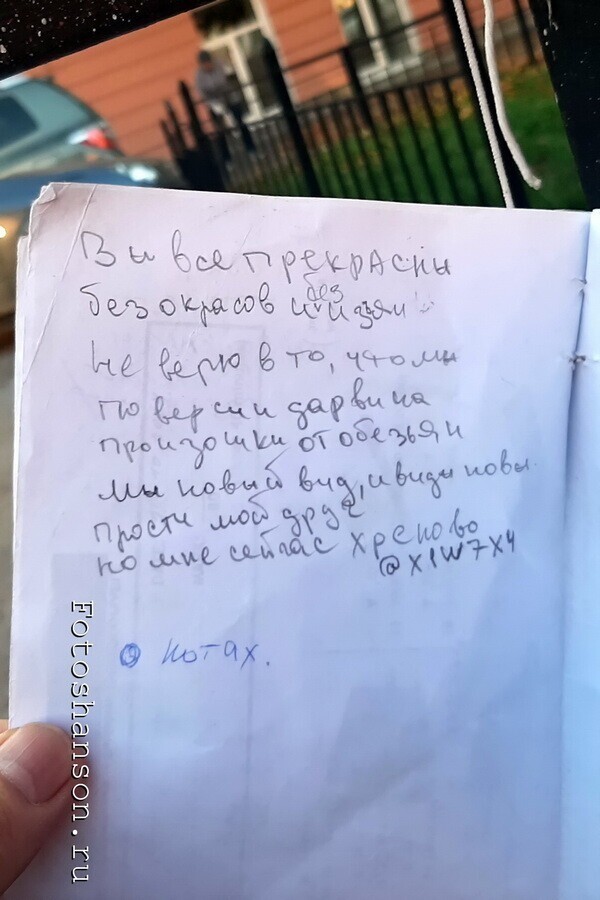 Вы все прекрасны
без окрасов и без изъян
Не верю в то, что мы
по версии дарвина
произошки от обезьян
Мы новый вид, и виды новы
прости мой друг
но мне сейчас хреново
@X1W7X4
О котах.
Fotoshanson.ru